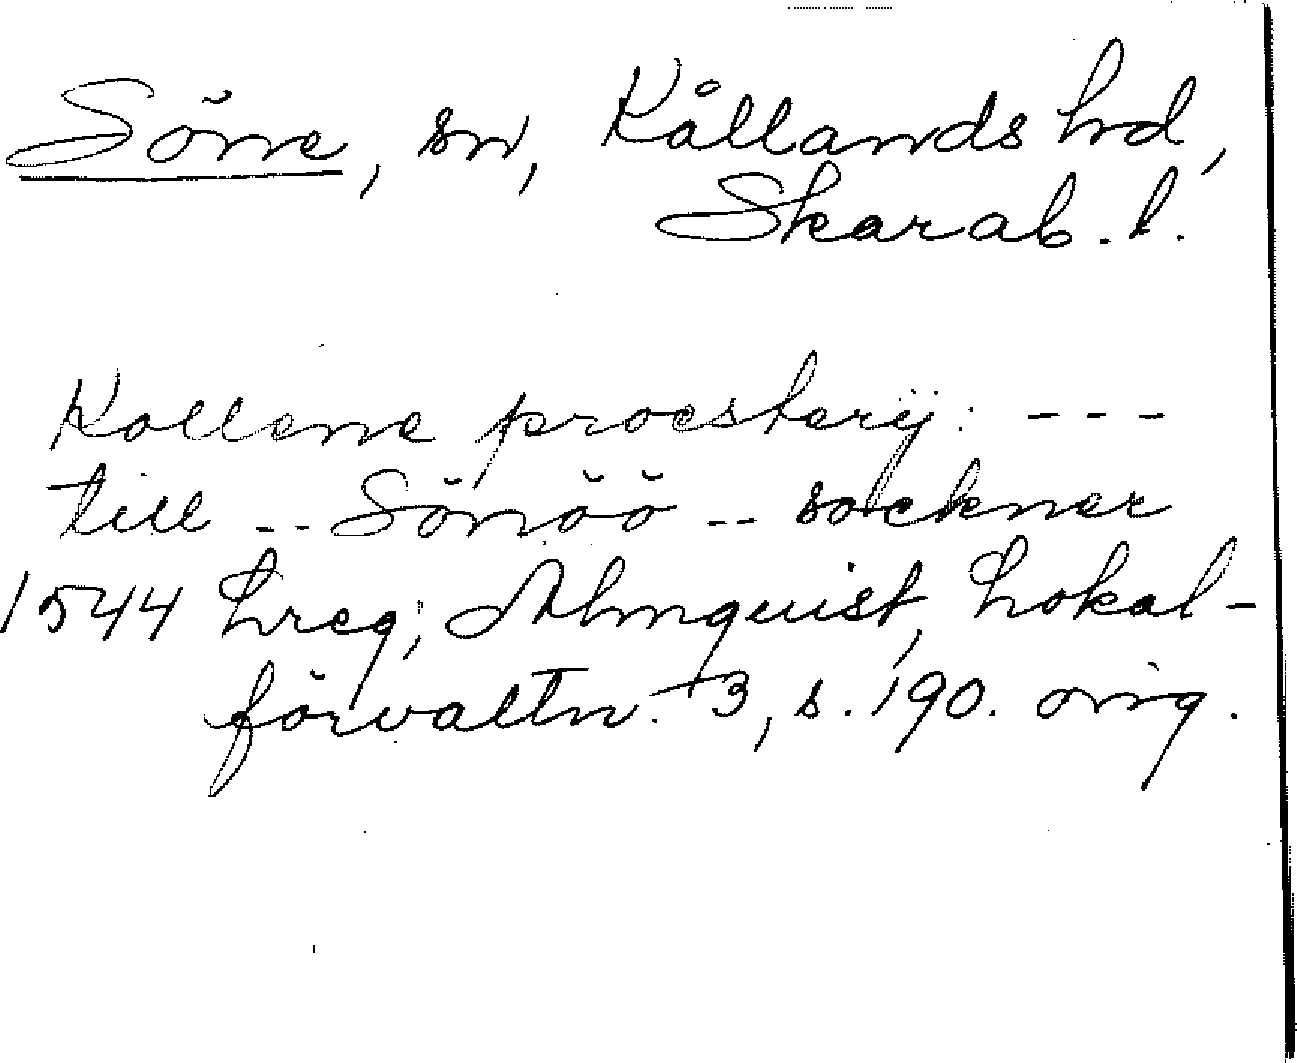 Söne, sn, Kållands hd,
Skarab. l.
Kollene proesterij: ---
till -- Sönöö -- sockner
1544 Lreg, Almquist, Lokal-
förvaltn. 3, s. 190. orig.